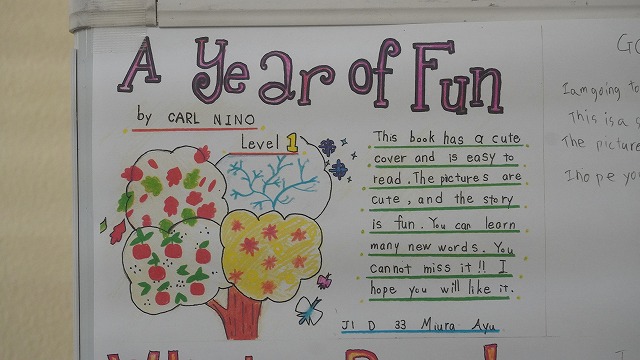 A Year of Fun
by CARL NINO
Level 1
This book has a cute
cover and is easy to
read. The pictures are
cute, and the story
is fun. You can learn
many new words. You
cannot miss it!! I
hope you will like it.
J1 D 33 Miura Ayu
I am going to
This is a
The picture
I hope you